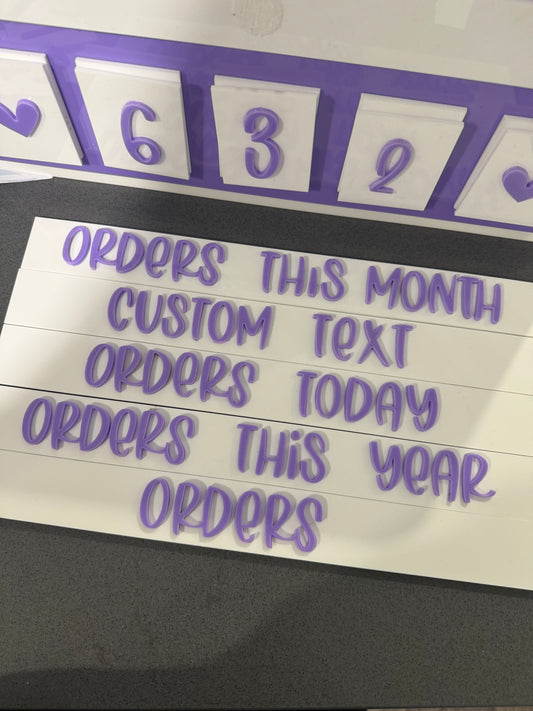 6 3 2
ORDERS THIS MONTH
CUSTOM TEXT
ORDERS TODAY
ORDERS THIS YEAR
ORDERS